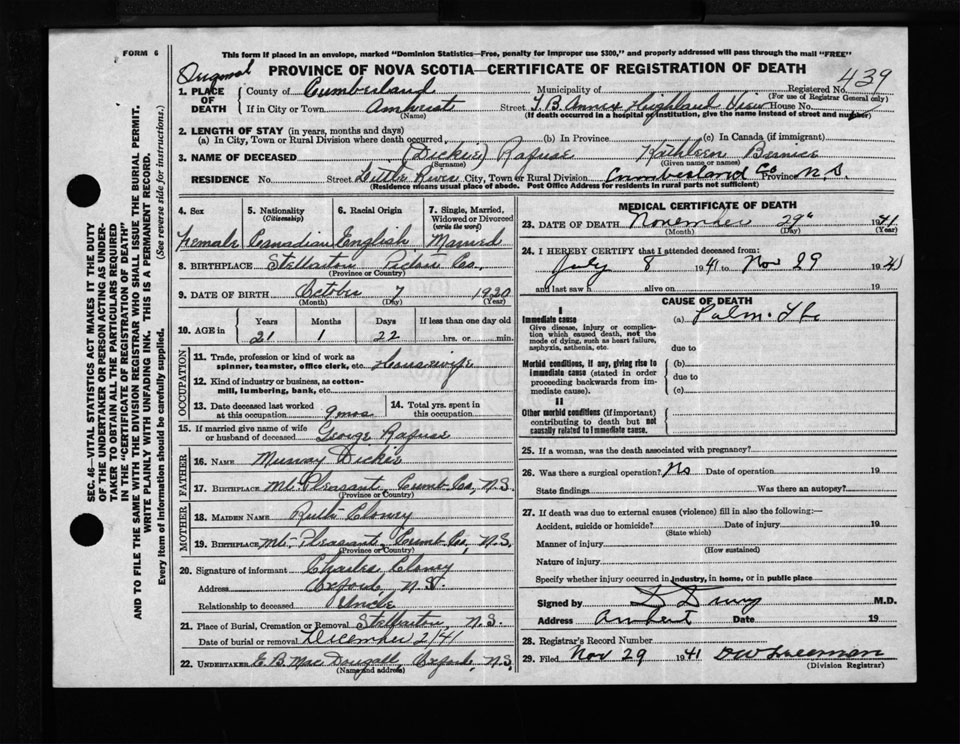 FORM 6
This form if placed in an envelope, marked "Dominion Statistics—Free, penalty for improper use $300," and properly addressed will pass through the mail "FREE"
Original
PROVINCE OF NOVA SCOTIA—CERTIFICATE OF REGISTRATION OF DEATH
439
1. PLACE OF DEATH
County of Cumberland Municipality of Registered No.
(For use of Registrar General only)
If in City or Town Amherst Street T.B. Annex Highland View House No.
(Name) (If death occurred in a hospital or institution, give the name instead of street and number)
2. LENGTH OF STAY (in years, months and days)
(a) In City, Town or Rural Division where death occurred (b) In Province (c) In Canada (if immigrant)
3. NAME OF DECEASED (Dickie) Rafuse Kathleen Bernice
(Surname) (Given name or names)
RESIDENCE No. Street Little River City, Town or Rural Division Cumberland Co Province N.S.
(Residence means usual place of abode. Post Office Address for residents in rural parts not sufficient)
4. Sex
Female
5. Nationality
(Citizenship)
Canadian
6. Racial Origin
English
7. Single, Married, Widowed or Divorced
(write the word)
Married
8. BIRTHPLACE Stellarton Pictou Co.
(Province or Country)
9. DATE OF BIRTH October 7 1920
(Month) (Day) (Year)
10. AGE in Years Months Days If less than one day old
21 1 22 hrs. or min.
OCCUPATION
11. Trade, profession or kind of work as spinner, teamster, office clerk, etc. Housewife
12. Kind of industry or business, as cotton-mill, lumbering, bank, etc.
13. Date deceased last worked at this occupation 9 mos
14. Total yrs. spent in this occupation
15. If married give name of wife or husband of deceased George Rafuse
FATHER
16. NAME Murray Dickie
17. BIRTHPLACE Mt. Pleasant Cumb. Co, N.S.
(Province or Country)
MOTHER
18. MAIDEN NAME Ruth Cloney
19. BIRTHPLACE Mt. Pleasant Cumb. Co, N.S.
(Province or Country)
20. Signature of informant Charles Cloney
Address Oxford, N.S.
Relationship to deceased Uncle
21. Place of Burial, Cremation or Removal Stellarton, N.S.
Date of burial or removal December 2/41
22. UNDERTAKER E. B. MacDougall, Oxford, N.S.
(Name and address)
MEDICAL CERTIFICATE OF DEATH
23. DATE OF DEATH November 29th 1941
(Month) (Day) (Year)
24. I HEREBY CERTIFY that I attended deceased from:
July 8 1941 to Nov 29 1941
and last saw h alive on 19
CAUSE OF DEATH
I
Immediate cause
Give disease, injury or complication which caused death, not the mode of dying, such as heart failure, asphyxia, asthenia, etc.
(a) Pulm. Tbc
due to
Morbid conditions, if any, giving rise to immediate cause (stated in order proceeding backwards from immediate cause).
(b)
due to
(c)
II
Other morbid conditions (if important) contributing to death but not causally related to immediate cause.
25. If a woman, was the death associated with pregnancy?
26. Was there a surgical operation? No Date of operation 19
State findings Was there an autopsy?
27. If death was due to external causes (violence) fill in also the following:—
Accident, suicide or homicide? Date of injury 19
(State which)
Manner of injury
(How sustained)
Nature of injury
Specify whether injury occurred in industry, in home, or in public place
Signed by M.D.
Address Amherst Date 19
28. Registrar's Record Number
29. Filed Nov 29 1941 DW Freeman
(Division Registrar)
SEC. 46—VITAL STATISTICS ACT MAKES IT THE DUTY
OF THE UNDERTAKER OR PERSON ACTING AS UNDER-
TAKER TO OBTAIN ALL THE PARTICULARS REQUIRED
IN THE "CERTIFICATE OF REGISTRATION OF DEATH"
AND TO FILE THE SAME WITH THE DIVISION REGISTRAR WHO SHALL ISSUE THE BURIAL PERMIT.
WRITE PLAINLY WITH UNFADING INK. THIS IS A PERMANENT RECORD.
Every item of information should be carefully supplied. (See reverse side for instructions.)